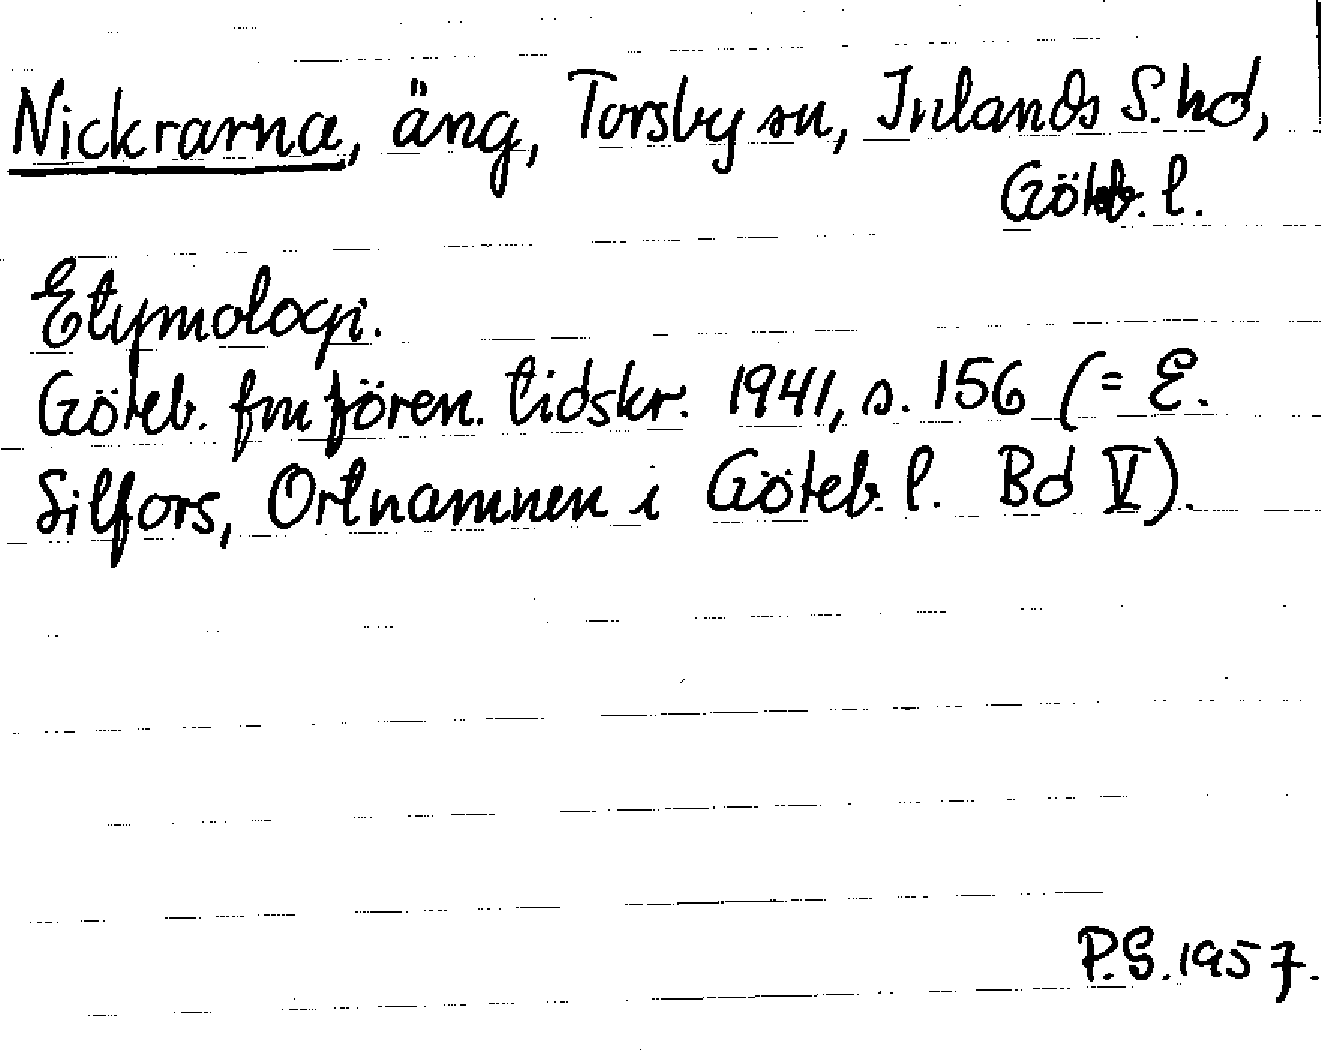 Nickrarna, äng, Torsby sn, Inlands S. hd,
Göteb. l.
Etymologi.
Göteb. fm fören. tidskr. 1941, s. 156 (= E.
Silfors, Ortnamnen i Göteb. l. Bd V).
P.S. 1957.